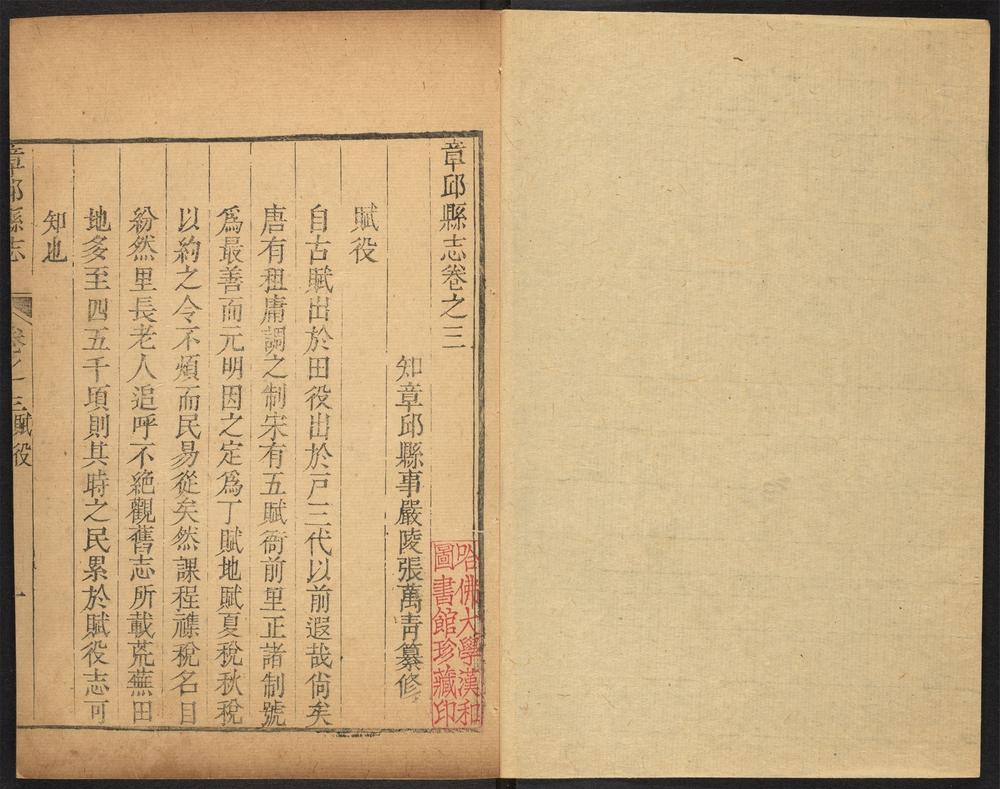 章邱縣志卷之三
知章邱縣事嚴陵張萬青纂修
賦役
自古賦出於田役出於戸三代以前遐哉尙矣
唐有租庸調之制宋有五賦衙前里正諸制號
爲最善而元明因之定爲丁賦地賦夏稅秋稅
以約之令不煩而民易從矣然課程襍稅名目
紛然里長老人追呼不絶觀舊志所載荒蕪田
地多至四五千項則其時之民累於賦役志可
知也
章邱縣志 卷之三賦役 一
哈佛大學漢和
圖書館珍藏印